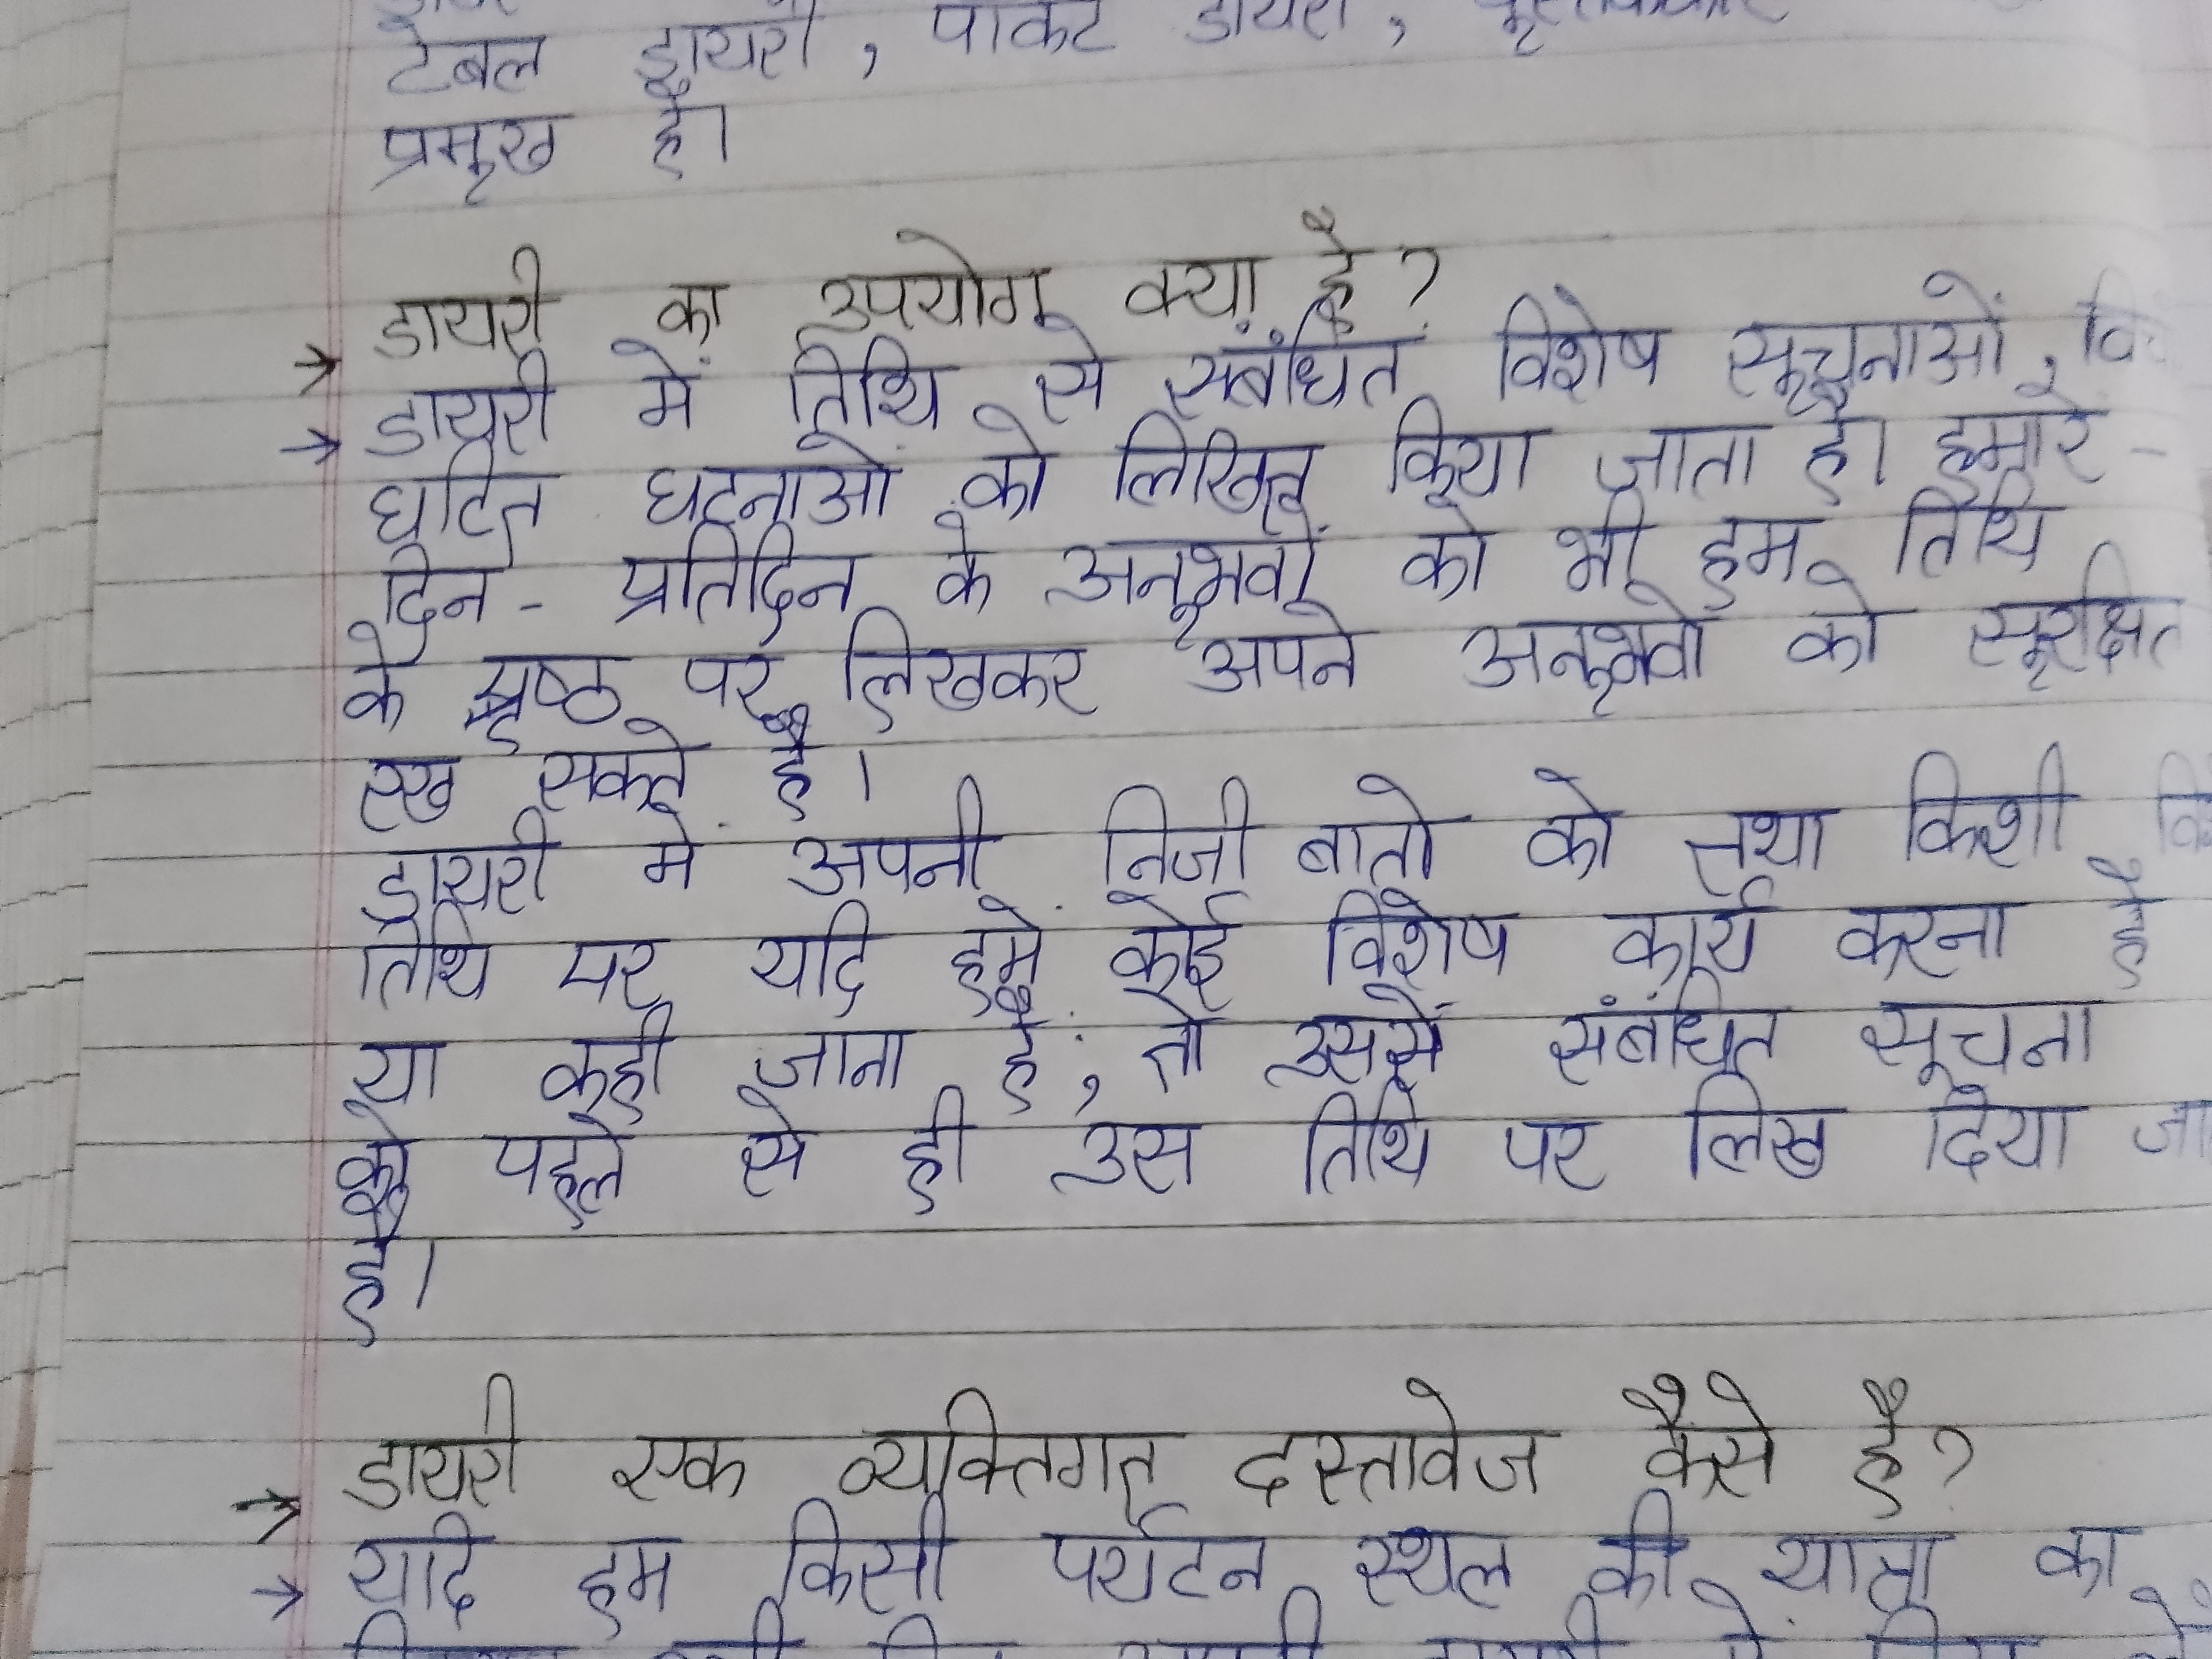 टेबल डायरी, पाकेट डायरी,
प्रमुख है।
डायरी का उपयोग क्या है?
डायरी में तिथि से संबंधित विशेष सूचनाओं,
घटित घटनाओं को लिखित किया जाता है। हमारे -
दिन - प्रतिदिन के अनुभवों को भी हम तिथि
के पृष्ठ पर लिखकर अपने अनुभवों को सुरक्षित
रख सकते है।
डायरी में अपनी निजी बातो को तथा किशी
तिथि पर यदि हमें कोई विशेष कार्य करना है
या कही जाना है, तो उससे संबंधित सूचना
को पहले से ही उस तिथि पर लिख दिया
है।
डायरी एक व्यक्तिगत दस्तावेज कैसे है?
यदि हम किसी पर्यटन स्थल की यात्रा का